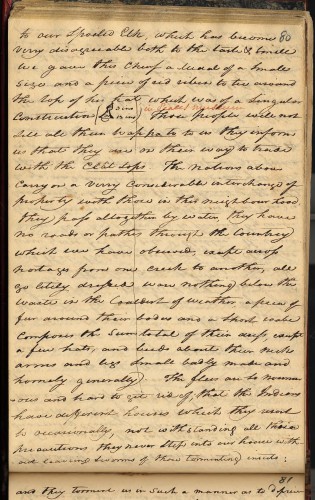 80
to our Spoiled Elk, which has become
very disagreeable both to the taste & smell
we gave this Chief a medal of a Small
Size and a piece of red ribin to tie around
the top of his hat which was of a Singular
Construction Those people will not
Sell all their Wappato to us they inform
us that they are on their way to trade
with the Clat sops. The nations above
Carry on a very Considerable interchange of
property with those in this neighbour hood.
they pass altogether by water, they have
no roads or pathes through the Countrey
which we have observed, except across
portages from one creek to another, all
go litely dressed ware nothing below the
waste in the Couldest of weather, a piece of
fur around their bodies and a Short robe
Composes the Sum total of their dress, except
a fiew hats, and beeds about their necks
arms and legs Small badly made and
homely generally. The flees are So noumer-
ous and hard to get rid of, that the Indians
have different houses which they resort
to occasionally, not withstanding all their
precautions they never Step into our house with
out leaveing Sworms of those tormenting insects;
81
and they torment us in Such a manner as to deprive